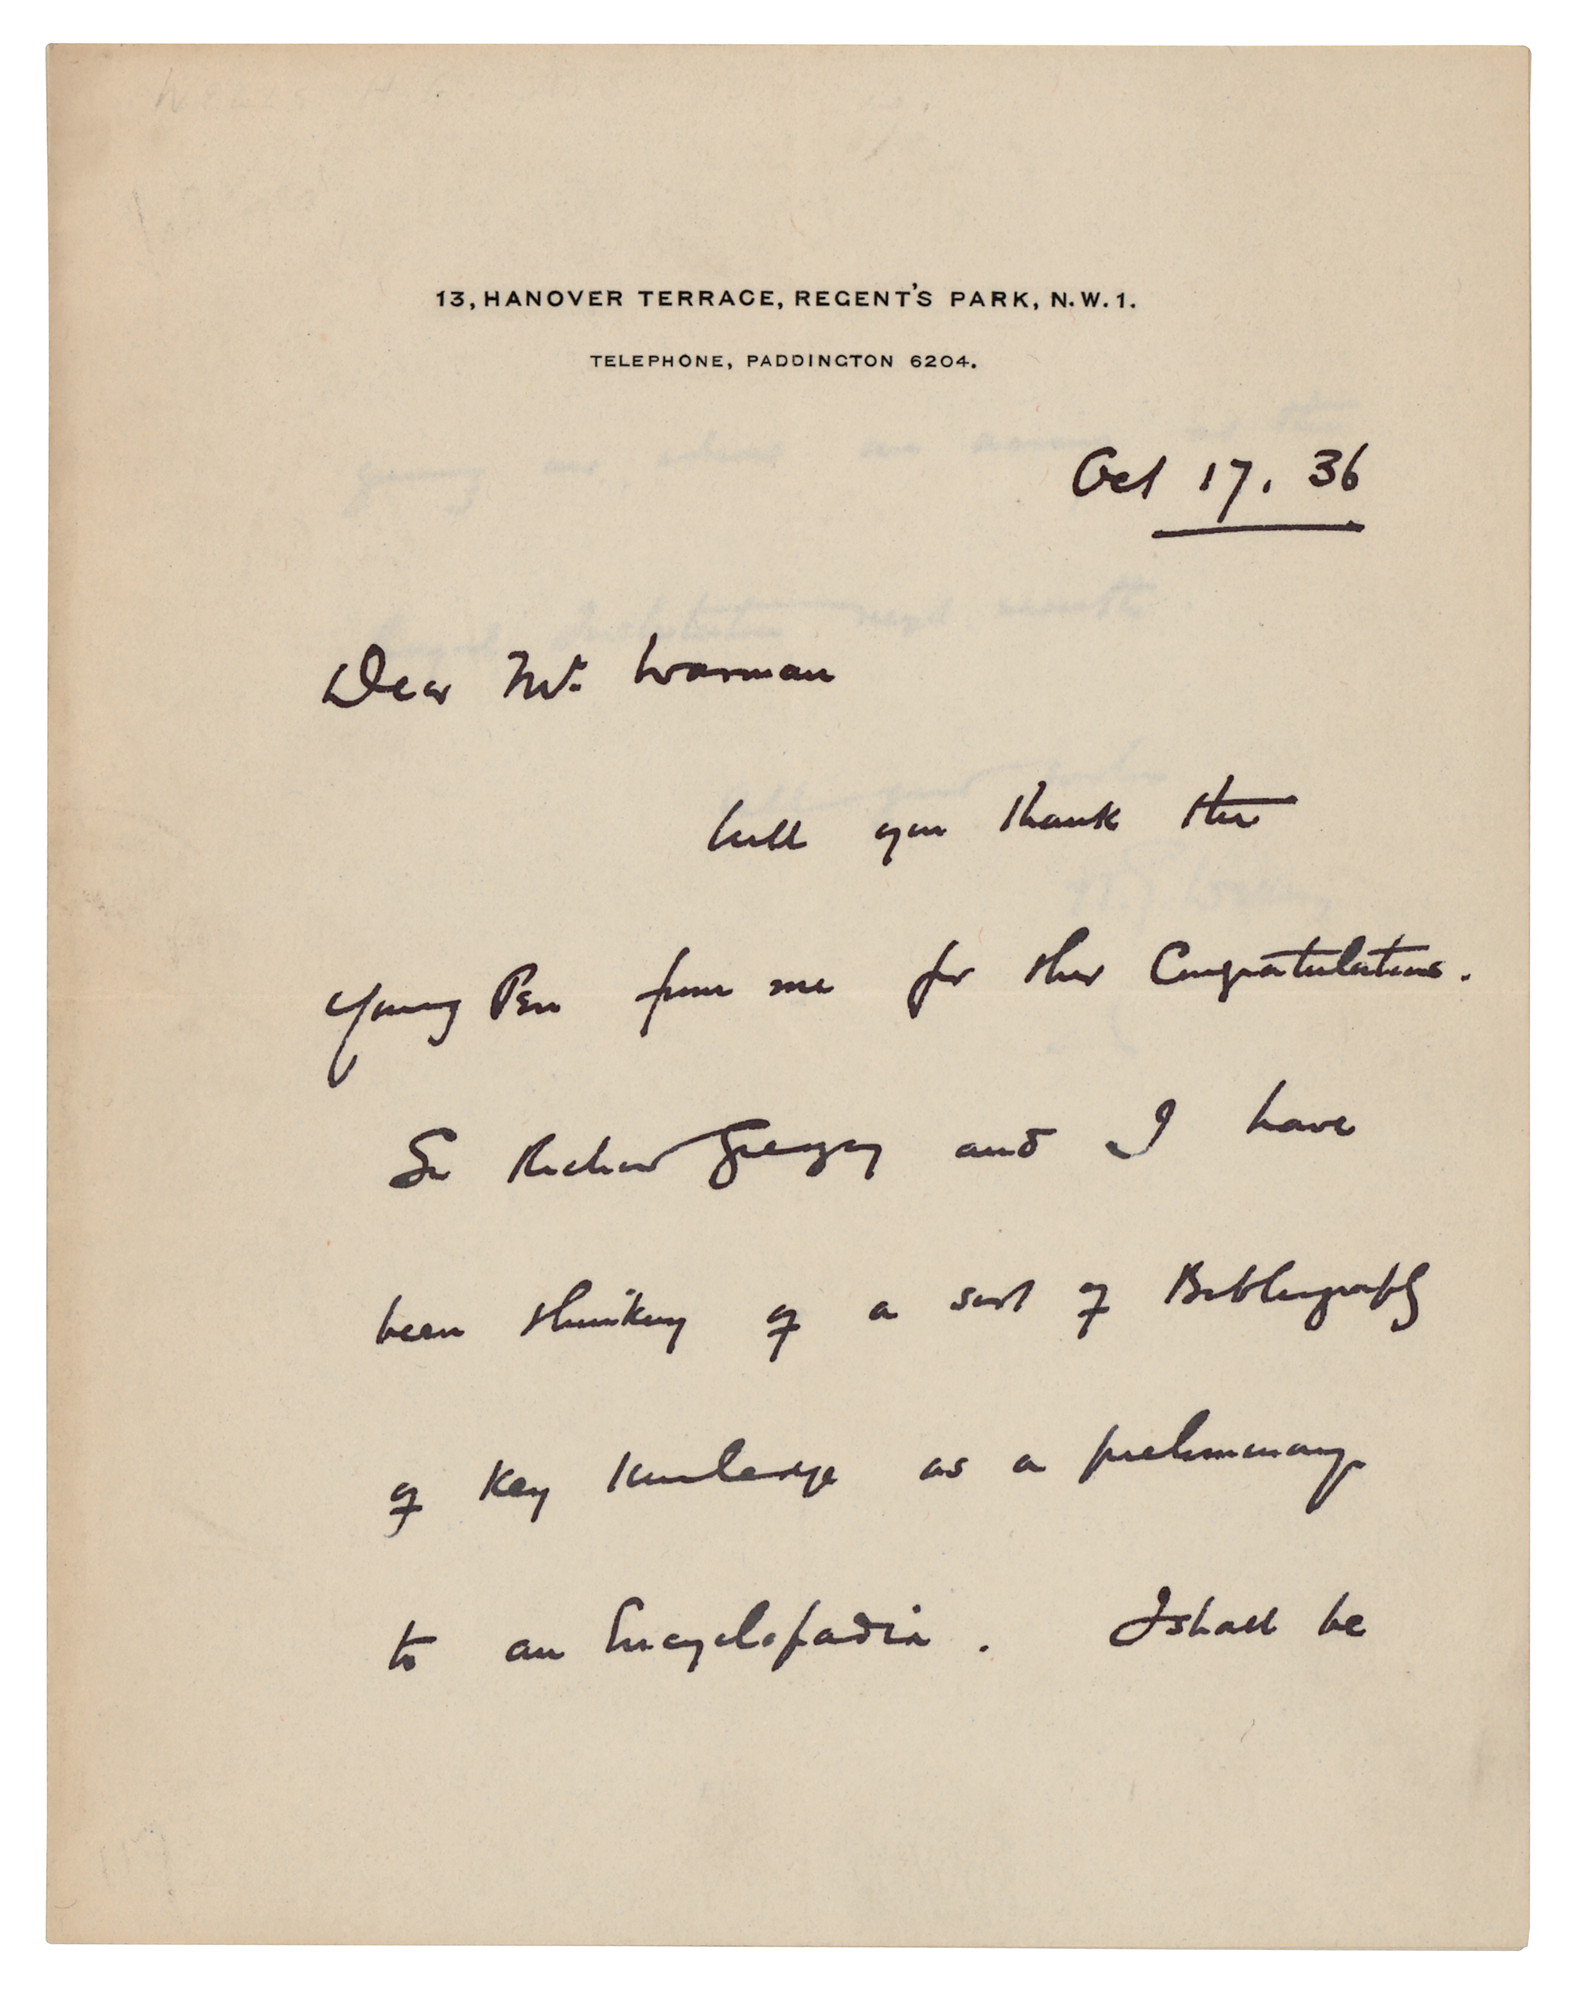 13, HANOVER TERRACE, REGENT'S PARK, N.W.1.
TELEPHONE, PADDINGTON 6204.
Oct 17. 36
Dear Mr. Warman
Will you thank the
Young Pen from me for their Congratulations.
Sir Richard Gregory and I have
been thinking of a sort of Bibliography
of Key Knowledge as a preliminary
to an Encyclopaedia. I shall be